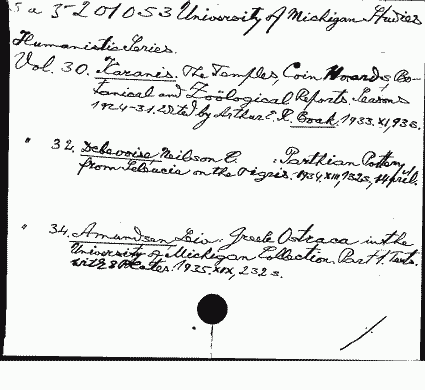 5 a 3-201053 University of Michigan Studies
Humanistic Series.
Vol. 30. Karanis. The Temples, Coin Hoards, Bo-
tanical and Zoölogical Reports. Seasons
1924-31. Edited by Arthur E. R. Boak. 1933. XI, 93 s.
" 32. Debevoise Neilson C. : Parthian Pottery
from Seleucia on the Tigris. 1934. XIII, 132 s., 14 pl.
" 34. Amundsen Leiv: Greek Ostraca in the
University of Michigan Collection. Part 1. Texts.
with 8 Plates. 1935. XIX, 232 s.